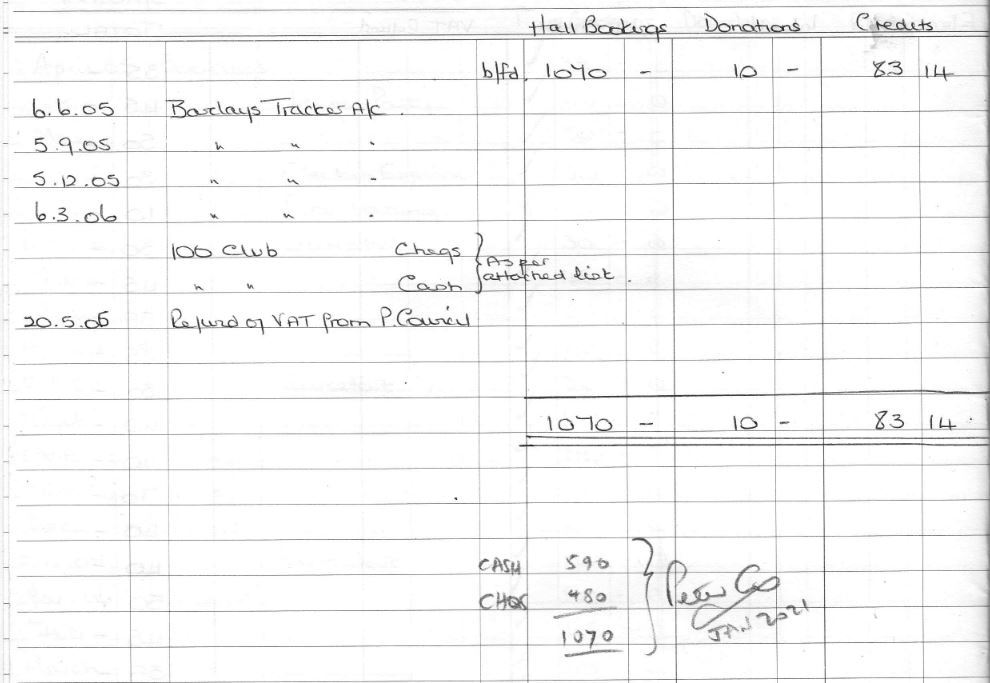 Hall Bookings Donations Credits
b/fd. 1070 - 10 - 83 14
6.6.05 Barclays Tracker A/c.
5.9.05 " " "
5.12.05 " " "
6.3.06 " " "
100 Club Cheqs } As per
" " Cash } attached list.
20.5.05 Refund of VAT from P. Council
1070 - 10 - 83 14
CASH 590
CHQS 480
1070
Peter
JAN 2021